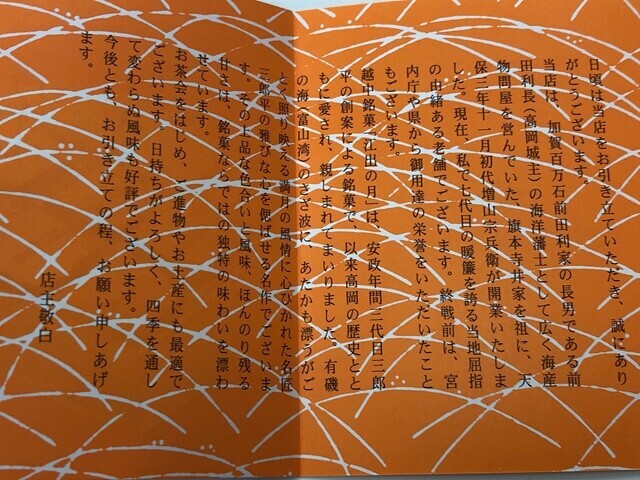 日頃は当店をお引き立ていただき、誠にあり
がとうございます。
当店は、加賀百万石前田利家の長男である前
田利長（高岡城主）の海洋藩士として広く海産
物問屋を営んでいた、旗本寺井家を祖に、天
保二年十一月初代増山宗兵衛が開業いたしま
した。現在、私で七代目の暖簾を誇る当地屈指
の由緒ある老舗でございます。終戦前は、宮
内庁や県から御用達の栄誉をいただいたこと
もございます。
越中銘菓「江出の月」は、安政年間三代目三郎
平の創案による銘菓で、以来高岡の歴史とと
もに愛され、親しまれてまいりました。有磯
の海（富山湾）のさざ波に、あたかも漂うがご
とく照り映える満月の風情に心ひかれた名匠
三郎平の雅びな心を偲ばせる名作でございま
す。その上品な色合いと風味、ほんのり残る
甘さは、銘菓ならではの独特の味わいを漂わ
せています。
お茶会をはじめ、ご進物やお土産にも最適で
ございます。日持ちがよろしく、四季を通し
て変わらぬ風味も好評でございます。
今後とも、お引き立ての程、お願い申しあげ
ます。
店主敬白